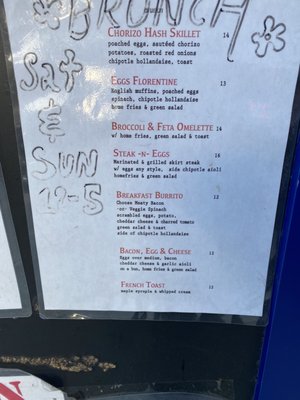 BRUNCH
Sat
&
SUN
12-5
CHORIZO HASH SKILLET 14
poached eggs, sautéed chorizo
potatoes, roasted red onions
chipotle hollandaise, toast
EGGS FLORENTINE 13
English muffins, poached eggs
spinach, chipotle hollandaise
home fries & green salad
BROCCOLI & FETA OMELETTE 14
w/ home fries, green salad & toast
STEAK -N- EGGS 16
Marinated & grilled skirt steak
w/ eggs any style, side chipotle aioli
homefries & green salad
BREAKFAST BURRITO 12
Choose Meaty Bacon
-or- Veggie Spinach
scrambled eggs, potato,
cheddar cheese & charred tomato
green salad & toast
side of chipotle hollandaise
BACON, EGG & CHEESE 12
Eggs over medium, bacon
cheddar cheese & garlic aioli
on a bun, home fries & green salad
FRENCH TOAST 12
maple syrup & whipped cream